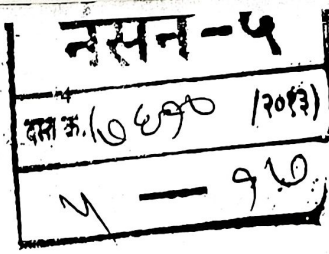 नसन-५
दस्त क. (७६१० /२०१३)
५ — १७